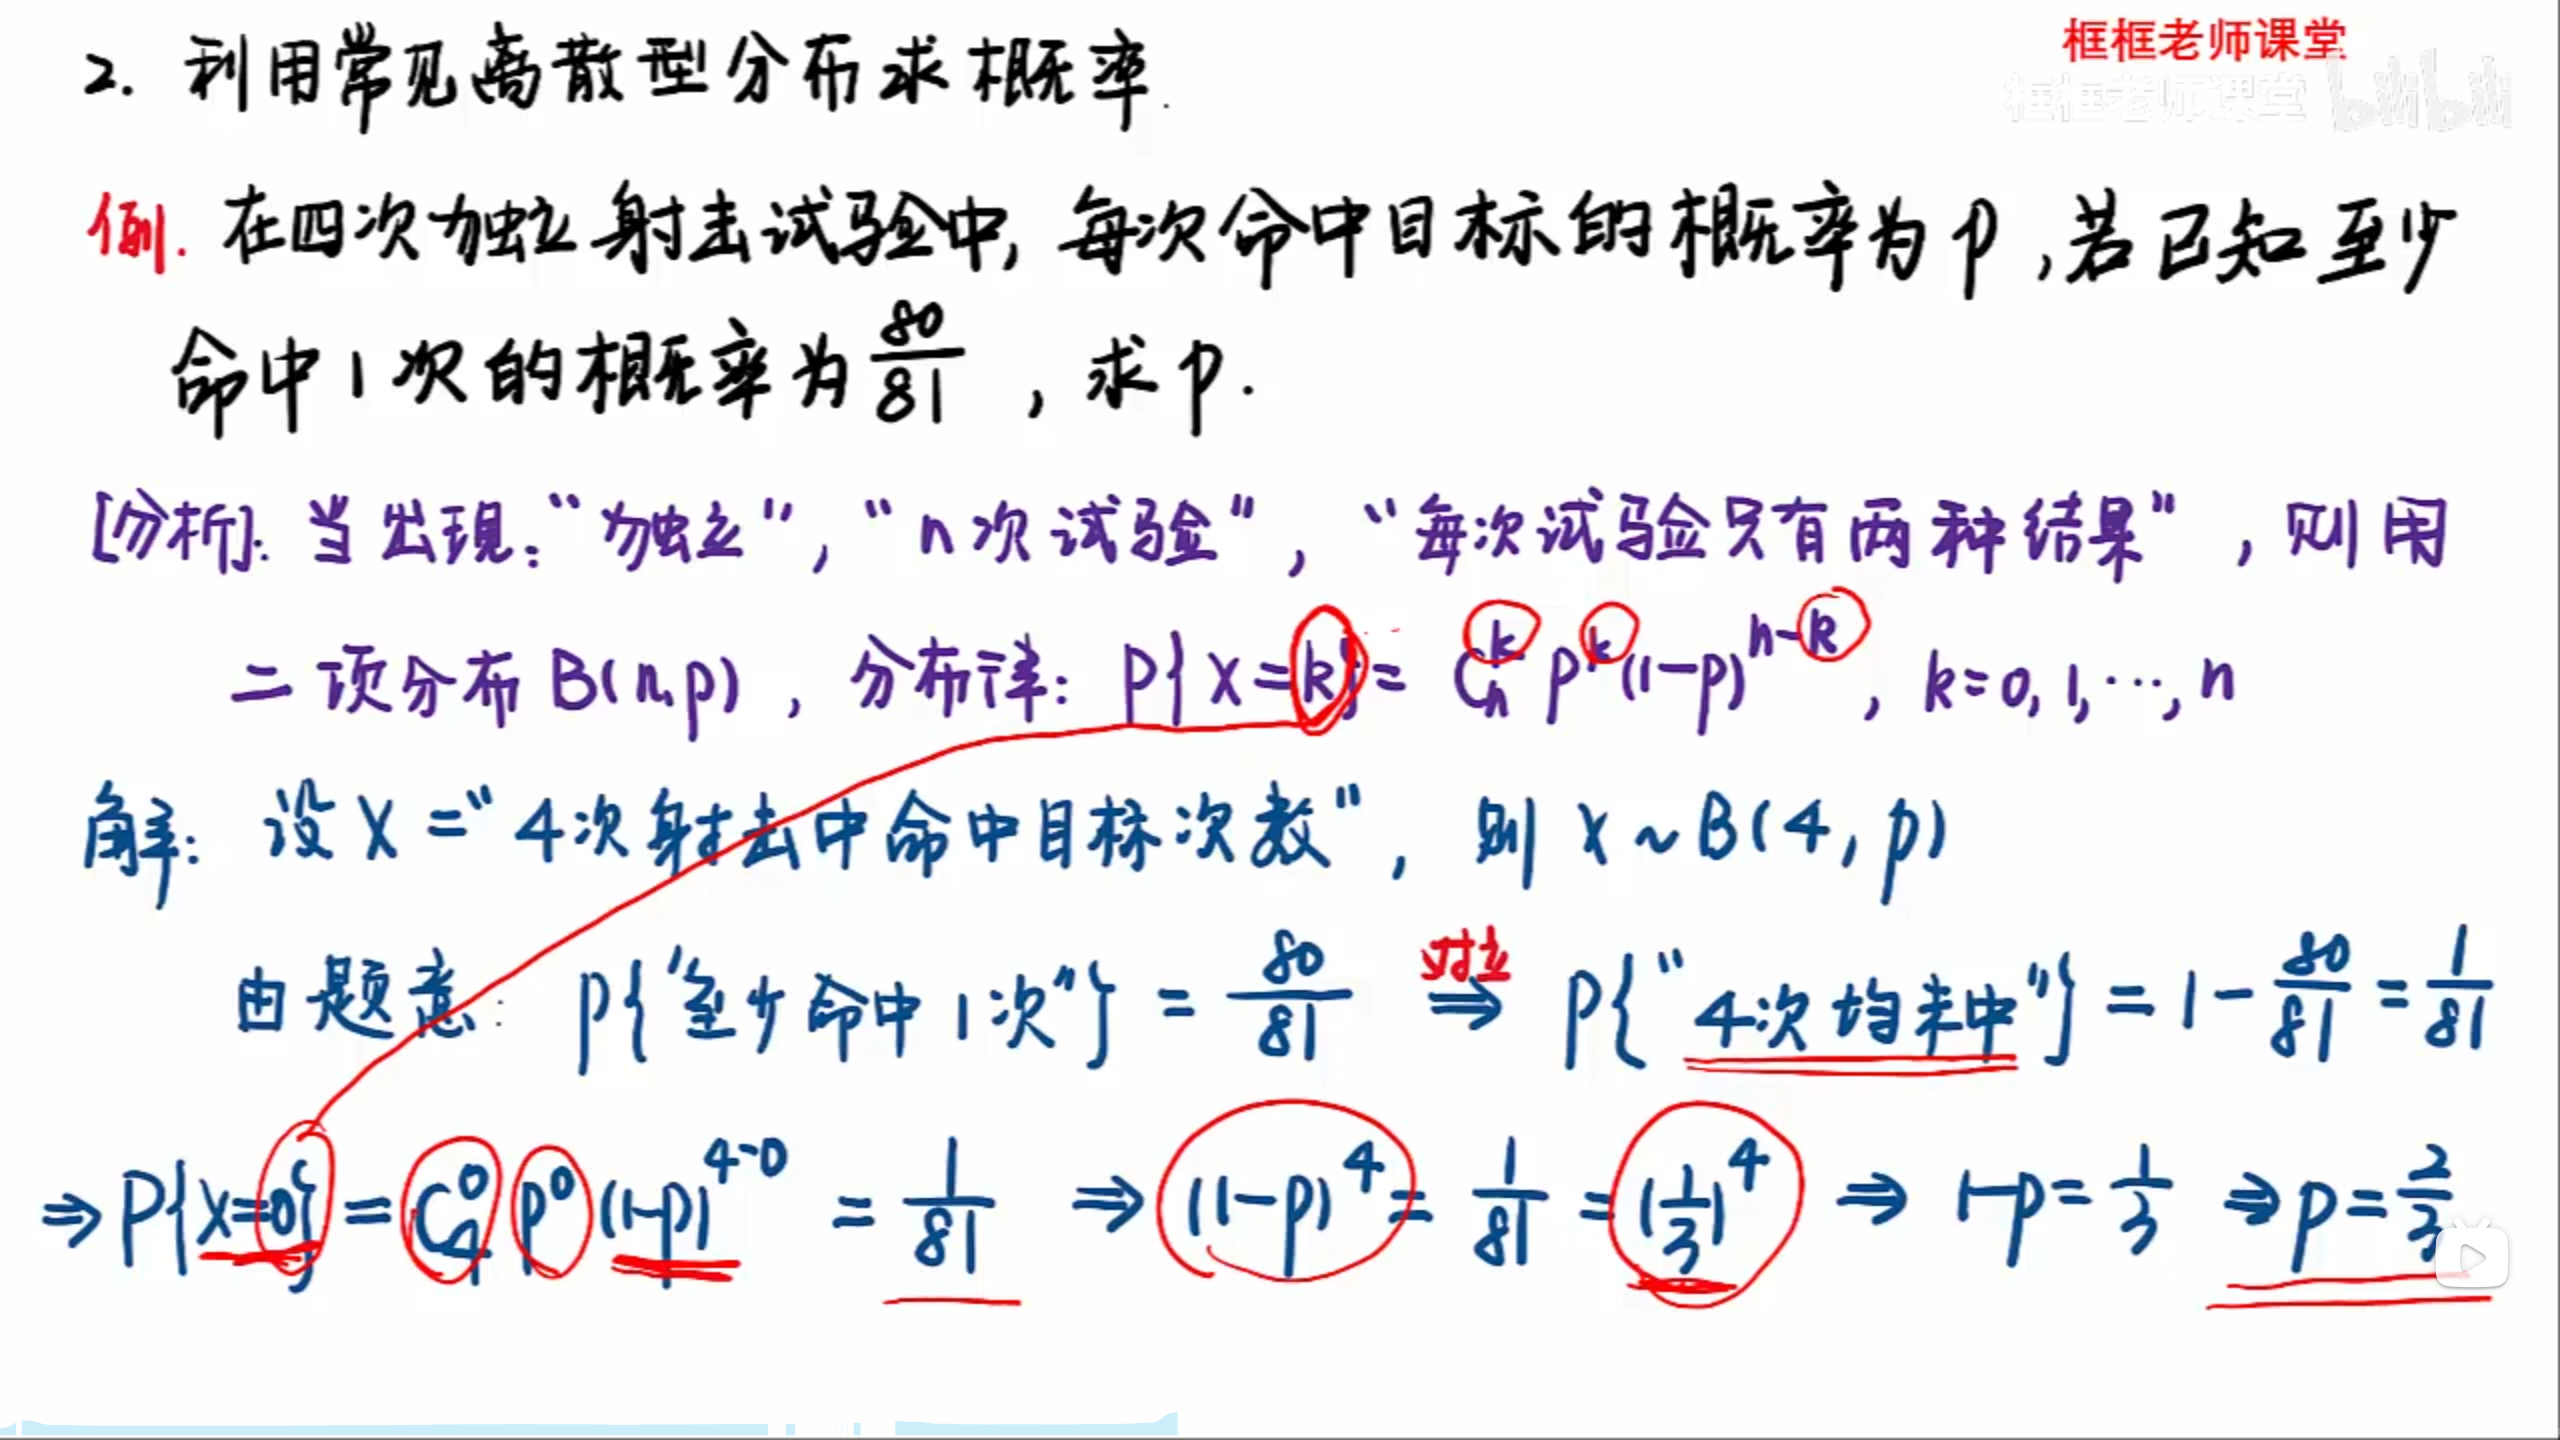 框框老师课堂
框框老师课堂 bilibili
2. 利用常见离散型分布求概率.
例. 在四次独立射击试验中, 每次命中目标的概率为p, 若已知至少
命中1次的概率为80/81, 求p.
[分析]: 当出现: “独立”, “n次试验”, “每次试验只有两种结果”, 则用
二项分布B(n,p), 分布律: P{X=k}= C_n^k p^k (1-p)^{n-k}, k=0,1,…,n
解: 设X=“4次射击中命中目标次数”, 则 X~B(4,p)
由题意: P{“至少命中1次”} = 80/81 对立⇒ P{“4次均未中”} = 1-80/81 = 1/81
⇒P{X=0} = C_4^0 p^0 (1-p)^{4-0} = 1/81 ⇒ (1-p)^4 = 1/81 = (1/3)^4 ⇒ 1-p = 1/3 ⇒ p = 2/3